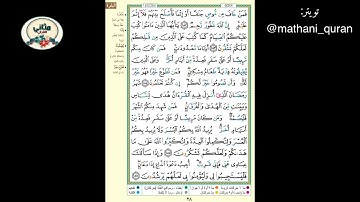 تويتر:
@mathani_quran
فَمَنْ خَافَ مِن مُّوصٍ جَنَفًا أَوْ إِثْمًا فَأَصْلَحَ بَيْنَهُمْ فَلَآ إِثْمَ
عَلَيْهِ إِنَّ ٱللَّهَ غَفُورٌ رَّحِيمٌ ١٨٢ يَٰٓأَيُّهَا ٱلَّذِينَ ءَامَنُوا۟ كُتِبَ
عَلَيْكُمُ ٱلصِّيَامُ كَمَا كُتِبَ عَلَى ٱلَّذِينَ مِن قَبْلِكُمْ
لَعَلَّكُمْ تَتَّقُونَ ١٨٣ أَيَّامًا مَّعْدُودَٰتٍ فَمَن كَانَ مِنكُم
مَّرِيضًا أَوْ عَلَىٰ سَفَرٍ فَعِدَّةٌ مِّنْ أَيَّامٍ أُخَرَ وَعَلَى ٱلَّذِينَ
يُطِيقُونَهُۥ فِدْيَةٌ طَعَامُ مِسْكِينٍ فَمَن تَطَوَّعَ خَيْرًا
فَهُوَ خَيْرٌ لَّهُۥ وَأَن تَصُومُوا۟ خَيْرٌ لَّكُمْ إِن كُنتُمْ تَعْلَمُونَ ١٨٤
شَهْرُ رَمَضَانَ ٱلَّذِىٓ أُنزِلَ فِيهِ ٱلْقُرْءَانُ هُدًى لِّلنَّاسِ
وَبَيِّنَٰتٍ مِّنَ ٱلْهُدَىٰ وَٱلْفُرْقَانِ فَمَن شَهِدَ مِنكُمُ ٱلشَّهْرَ
فَلْيَصُمْهُ وَمَن كَانَ مَرِيضًا أَوْ عَلَىٰ سَفَرٍ فَعِدَّةٌ مِّنْ
أَيَّامٍ أُخَرَ يُرِيدُ ٱللَّهُ بِكُمُ ٱلْيُسْرَ وَلَا يُرِيدُ بِكُمُ
ٱلْعُسْرَ وَلِتُكْمِلُوا۟ ٱلْعِدَّةَ وَلِتُكَبِّرُوا۟ ٱللَّهَ عَلَىٰ مَا
هَدَىٰكُمْ وَلَعَلَّكُمْ تَشْكُرُونَ ١٨٥ وَإِذَا سَأَلَكَ
عِبَادِى عَنِّى فَإِنِّى قَرِيبٌ أُجِيبُ دَعْوَةَ ٱلدَّاعِ إِذَا دَعَانِ
فَلْيَسْتَجِيبُوا۟ لِى وَلْيُؤْمِنُوا۟ بِى لَعَلَّهُمْ يَرْشُدُونَ ١٨٦
٢٨